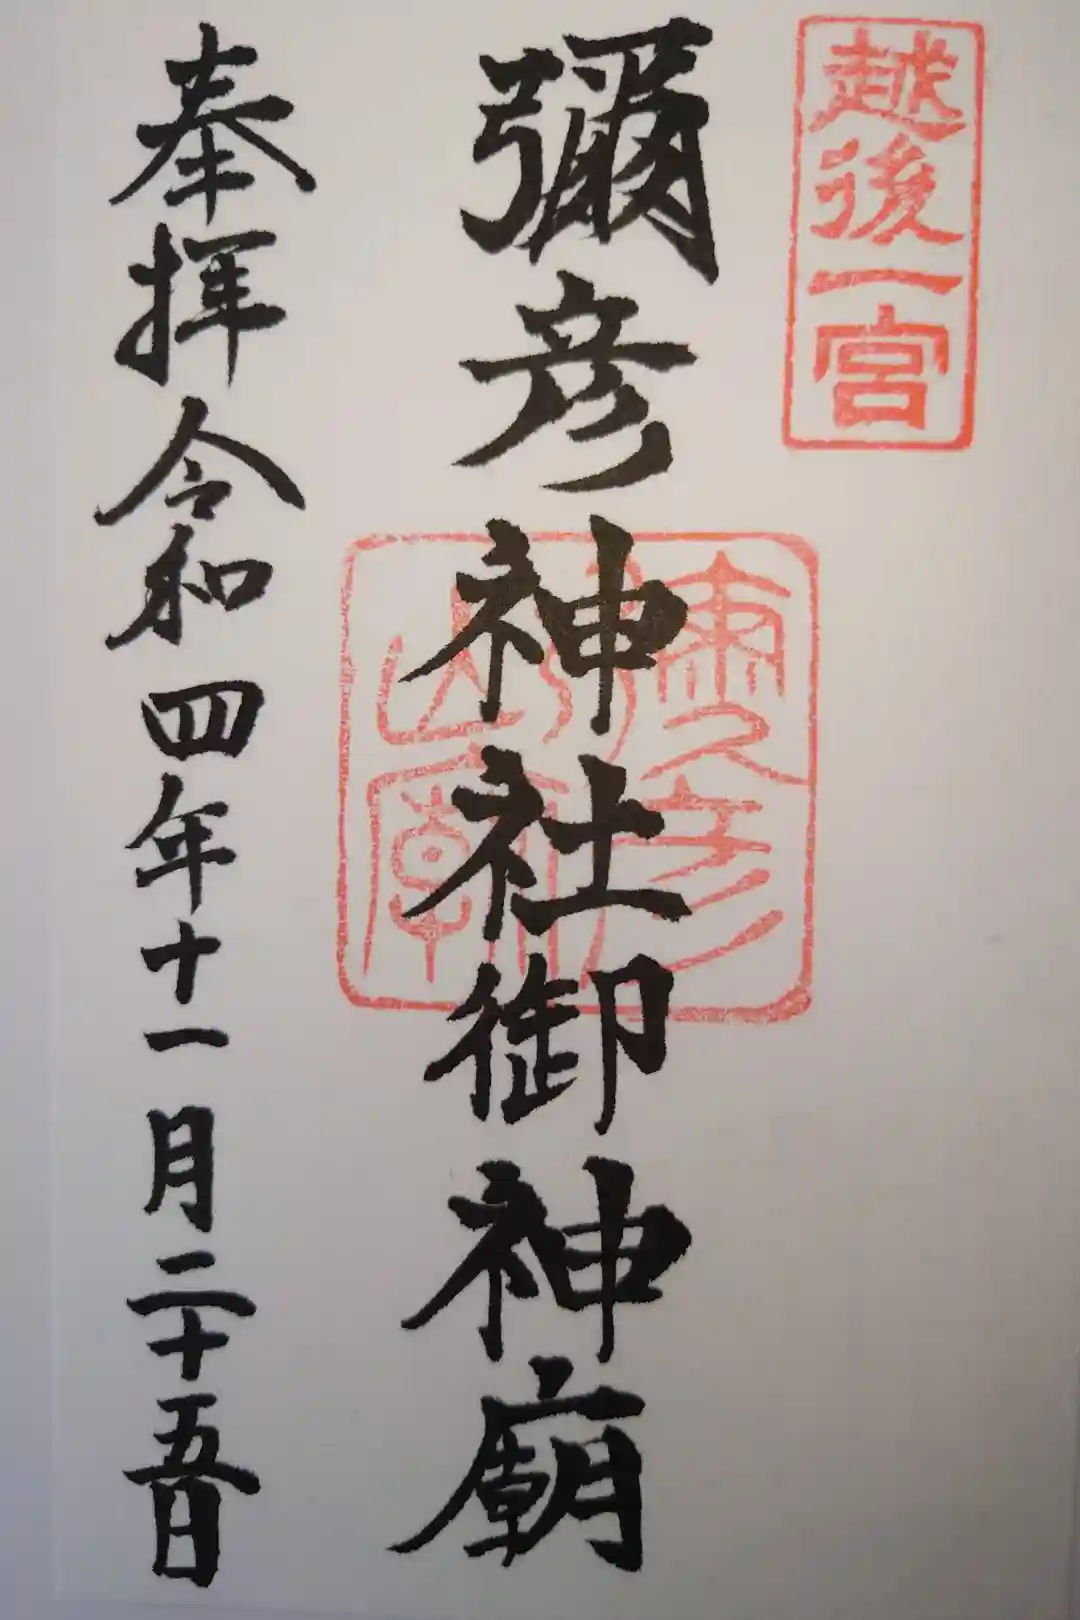 越後一宮
彌彦神社御神廟
奉拝令和四年十一月二十五日